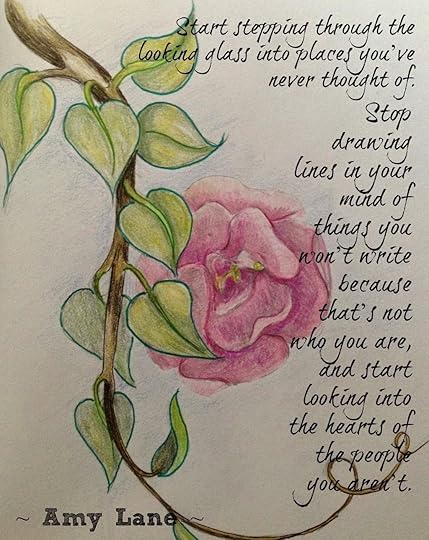 Start stepping through the
looking glass into places you've
never thought of.
Stop
drawing
lines in your
mind of
things you
won't write
because
that's not
who you are,
and start
looking into
the hearts of
the people
you aren't.
~ Amy Lane ~